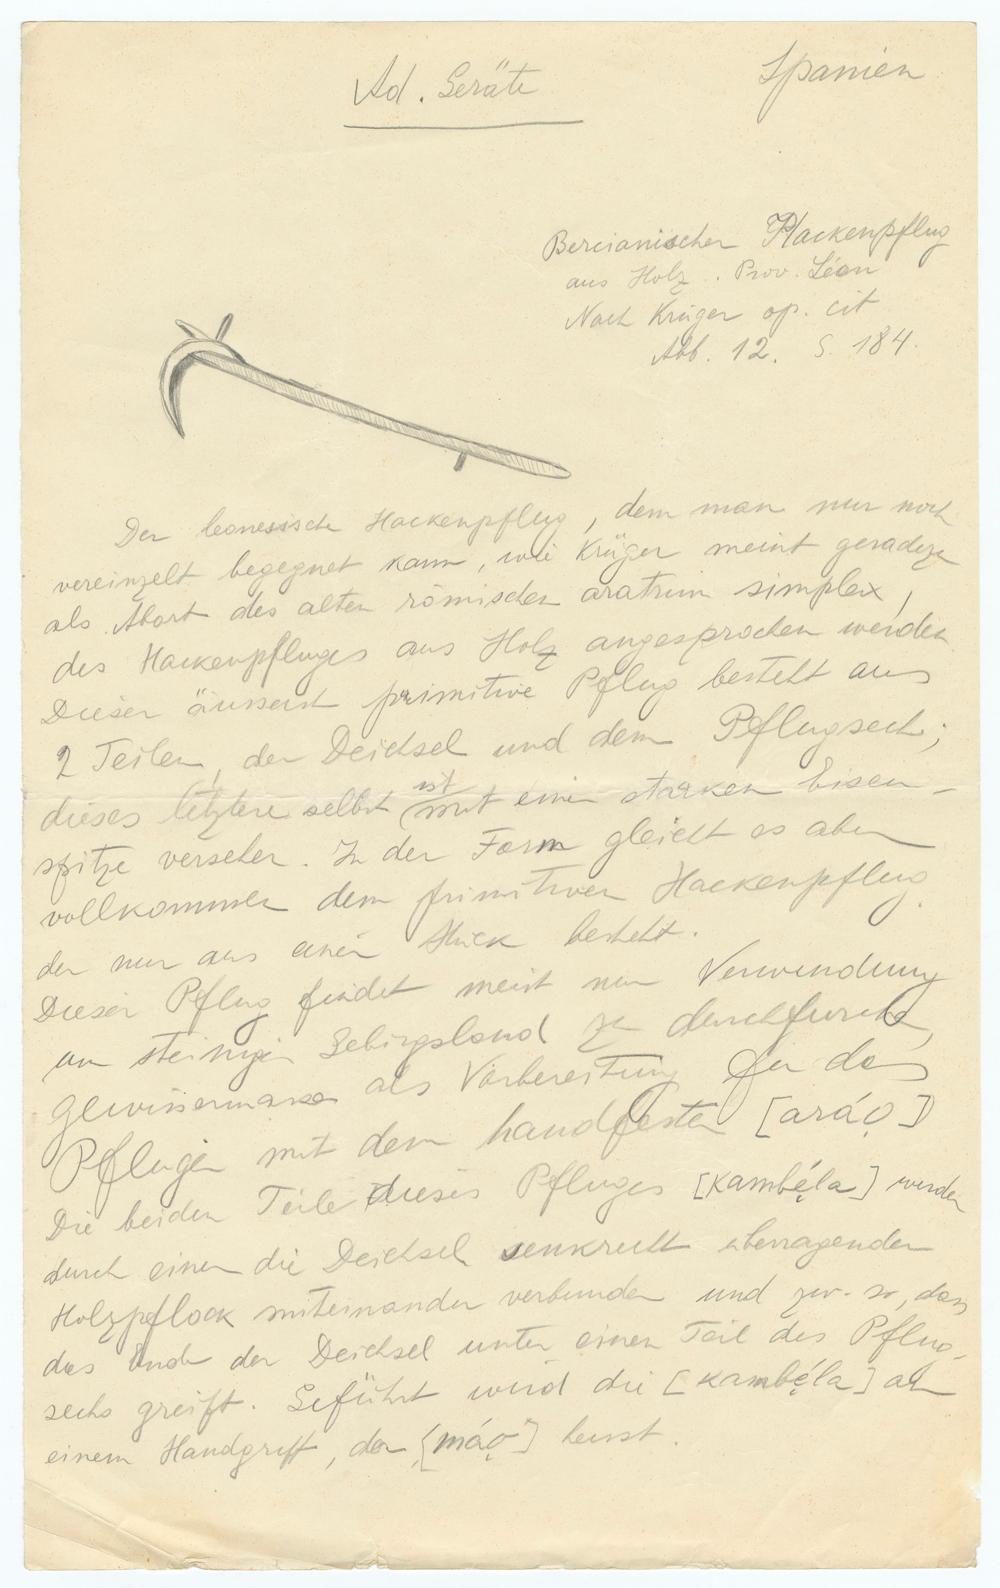 Ad. Geräte
Spanien
Bercianischer Hackenpflug
aus Holz. Prov. Léon
Nach Krüger op. cit
Abb. 12. S. 184.
Der leonesische Hackenpflug, dem man nur noch
vereinzelt begegnet kann, wie Krüger meint geradezu
als Abart des alten römischen aratrum simplex,
des Hackenpfluges aus Holz angesprochen werden
Dieser äusserst primitive Pflug besteht aus
2 Teilen, der Deichsel und dem Pflugsech;
dieses letztere selbst ist mit einer starken Eisen-
spitze versehen. In der Form gleicht es aber
vollkommen dem primitiven Hackenpflug.
der nur aus einem Stück besteht.
Dieser Pflug findet meist nur Verwendung
um steiniges Gebirgsland zu durchfurchen,
gewissermassen als Vorbereitung für das
Pflügen mit dem handfesten [aráo̜]
Die beiden Teile dieses Pfluges [kambę́la] werden
durch einen die Deichsel senkrecht überragenden
Holzpflock miteinander verbunden und zw. so, dass
das Ende der Deichsel unter einen Teil des Pflug-
sechs greift. Geführt wird die [kambę́la] an
einem Handgriff, der [máo̜] heisst.